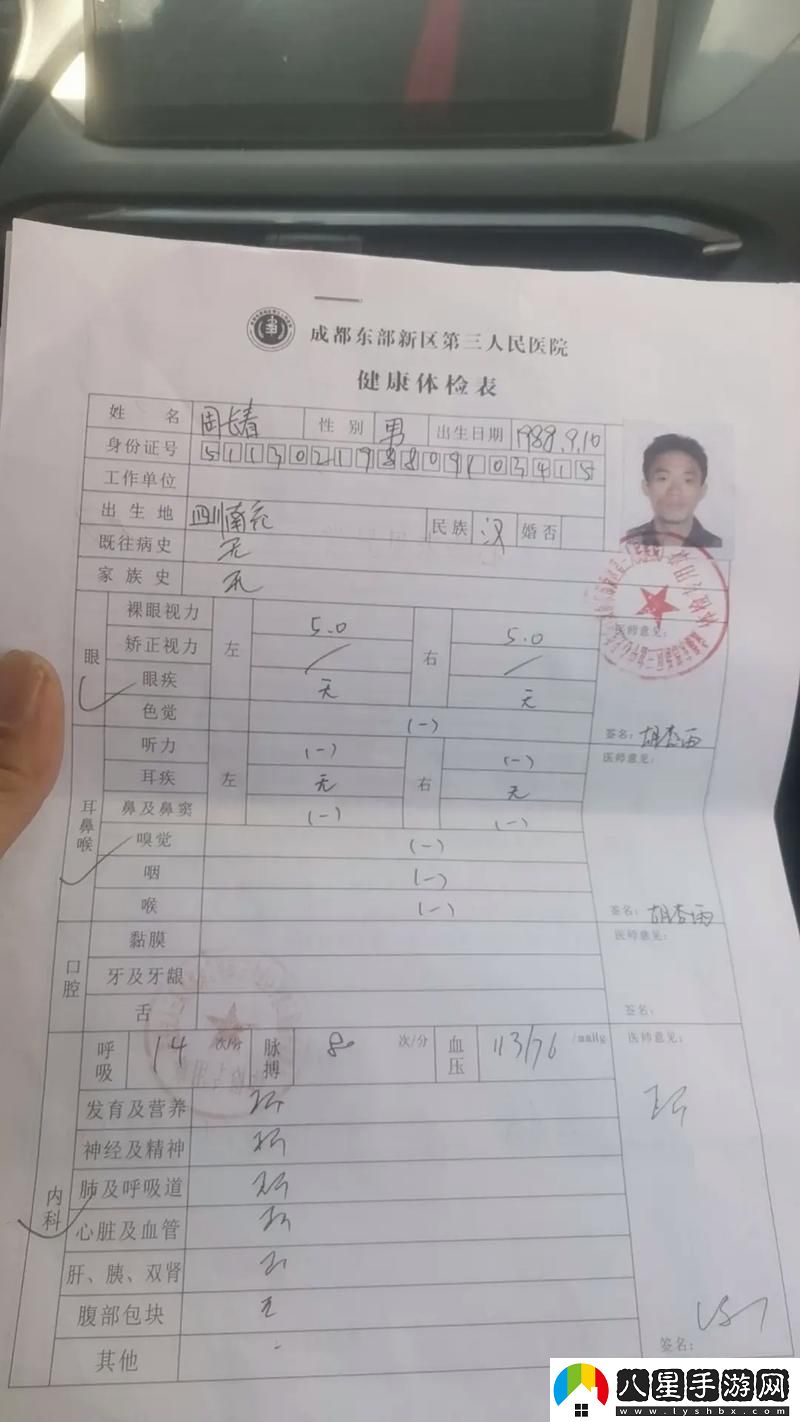 成都东部新区第三人民医院
健康体检表
姓 名 周长春 性 别 男 出生日期 1988.9.10
身份证号 511302198809103415
工作单位
出 生 地 四川南充 民族 汉 婚否
既往病史 无
家 族 史 无
眼 裸眼视力 左 5.0 右 5.0 医师意见:
矫正视力 / /
眼疾 无 无
色觉 (-) 签名:
耳鼻喉 听力 左 (-) 右 (-) 医师意见:
耳疾 无 无
鼻及鼻窦 (-) (-)
嗅觉 (-)
咽 (-)
喉 (-) 签名:
口腔 黏膜 医师意见:
牙及牙龈
舌 签名:
呼吸 14 次/分 脉搏 80 次/分 血压 113/76 /mmHg 医师意见:
内科 发育及营养
神经及精神
肺及呼吸道
心脏及血管
肝、胰、双肾
腹部包块 无
其他 -
签名:
八星手游网
www.lyshbx.com